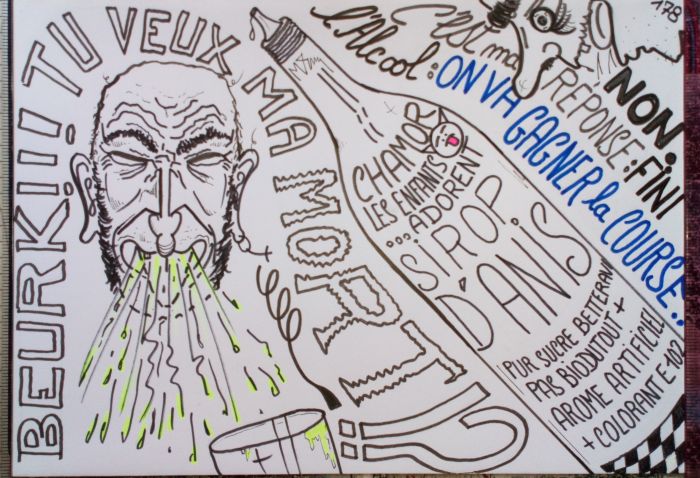 BEURK!!! TU VEUX MA MORT!?
178
C'est ma
RÉPONSE :
NON. FINI
l'Alcool : ON VA GAGNER la COURSE..
CHAMOR
LES ENFANTS
... ADORENT
SIROP
D'ANIS
PUR SUCRE BETTERAV
PAS BIODUTOUT +
AROME ARTIFICIEL
+ COLORANT E 102